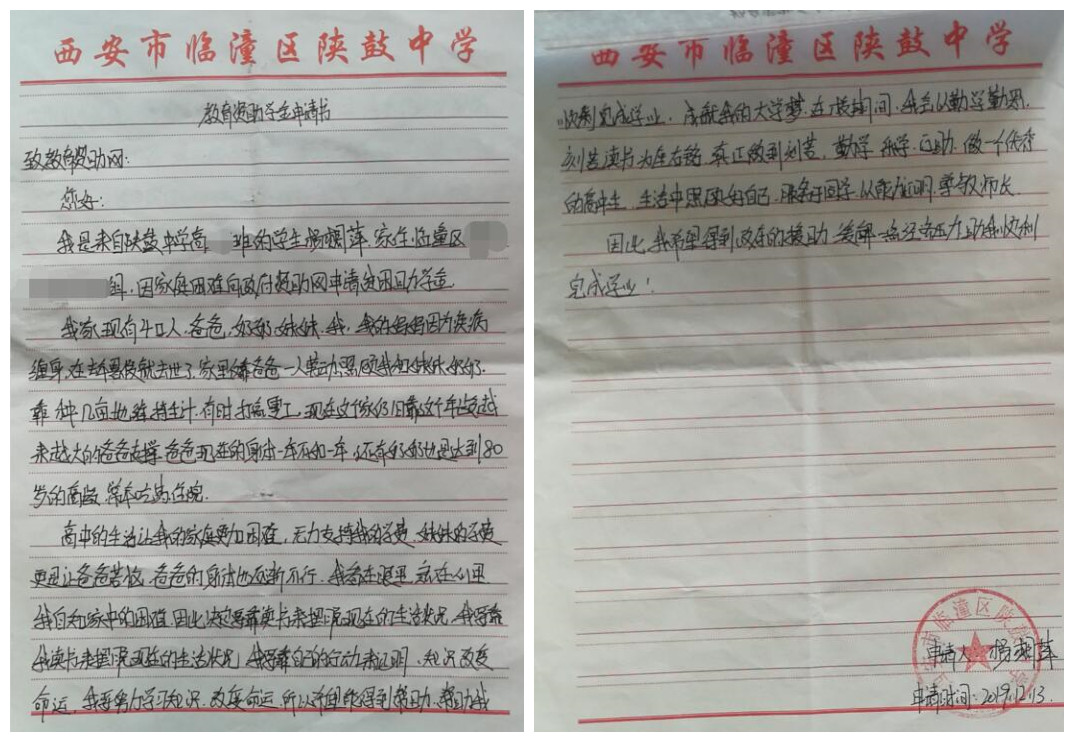 西安市临潼区陕鼓中学
教育资助学金申请书
致教育资助网:
您好:
我是来自陕鼓中学高 班的学生杨 萍,家住临潼区
组,因家庭困难向政府资助网申请贫困助学金
我家现有4口人,爸爸,奶奶,妹妹,我,我的妈妈因为疾病
缠身,在去年 就去世了,家里 靠爸爸一人劳动照顾我和妹妹奶奶.
靠种几亩地维持生计,有时打零工,现在这个家仍旧靠这个年龄越
来越大的爸爸支撑,爸爸现在的身体一年不如一年,还有奶奶也是达到80
岁的高龄,常年吃药住院.
高中的生活让我的家庭更加困难,无力支持我的学费,妹妹的学费
更是让爸爸苦恼,爸爸的身体也 不行,我看在眼里,急在心里
我自知家中的困难,因此决定要靠读书来摆脱现在的生活状况,我要靠
我读书来摆脱现在的生活状况,我要靠自己的行动来证明,知识改变
命运,我要努力学习知识,改变命运,所以希望能得到帮助,帮助我
西安市临潼区陕鼓中学
顺利完成学业,成就我的大学梦.在 期间,我会以勤学勤思,
刻苦读书为座右铭,真正做到刻苦,勤学, 学,互助,做一个优秀
的高中生,生活中照顾好自己,服务于同学,以 证明,尊敬师长
因此,我希望得到政府的援助,缓解一点经济压力,助我顺利
完成学业!
市临潼区陕
申请人:杨 萍
申请时间:2019.12.13.